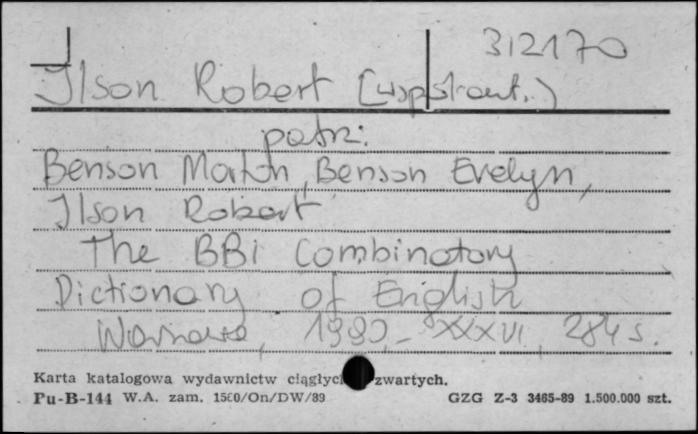 312170
Ilson Robert (współaut.)
patrz:
Benson Morton, Benson Evelyn,
Ilson Robert
The BBI Combinatory
Dictionary of English
Warszawa, 1989, - XXXVI, 284 s.
Karta katalogowa wydawnictw zwartych.
Pu-B-144 W.A. zam. 1560/On/DW/89 GZG Z-3 3465-89 1.500.000 szt.